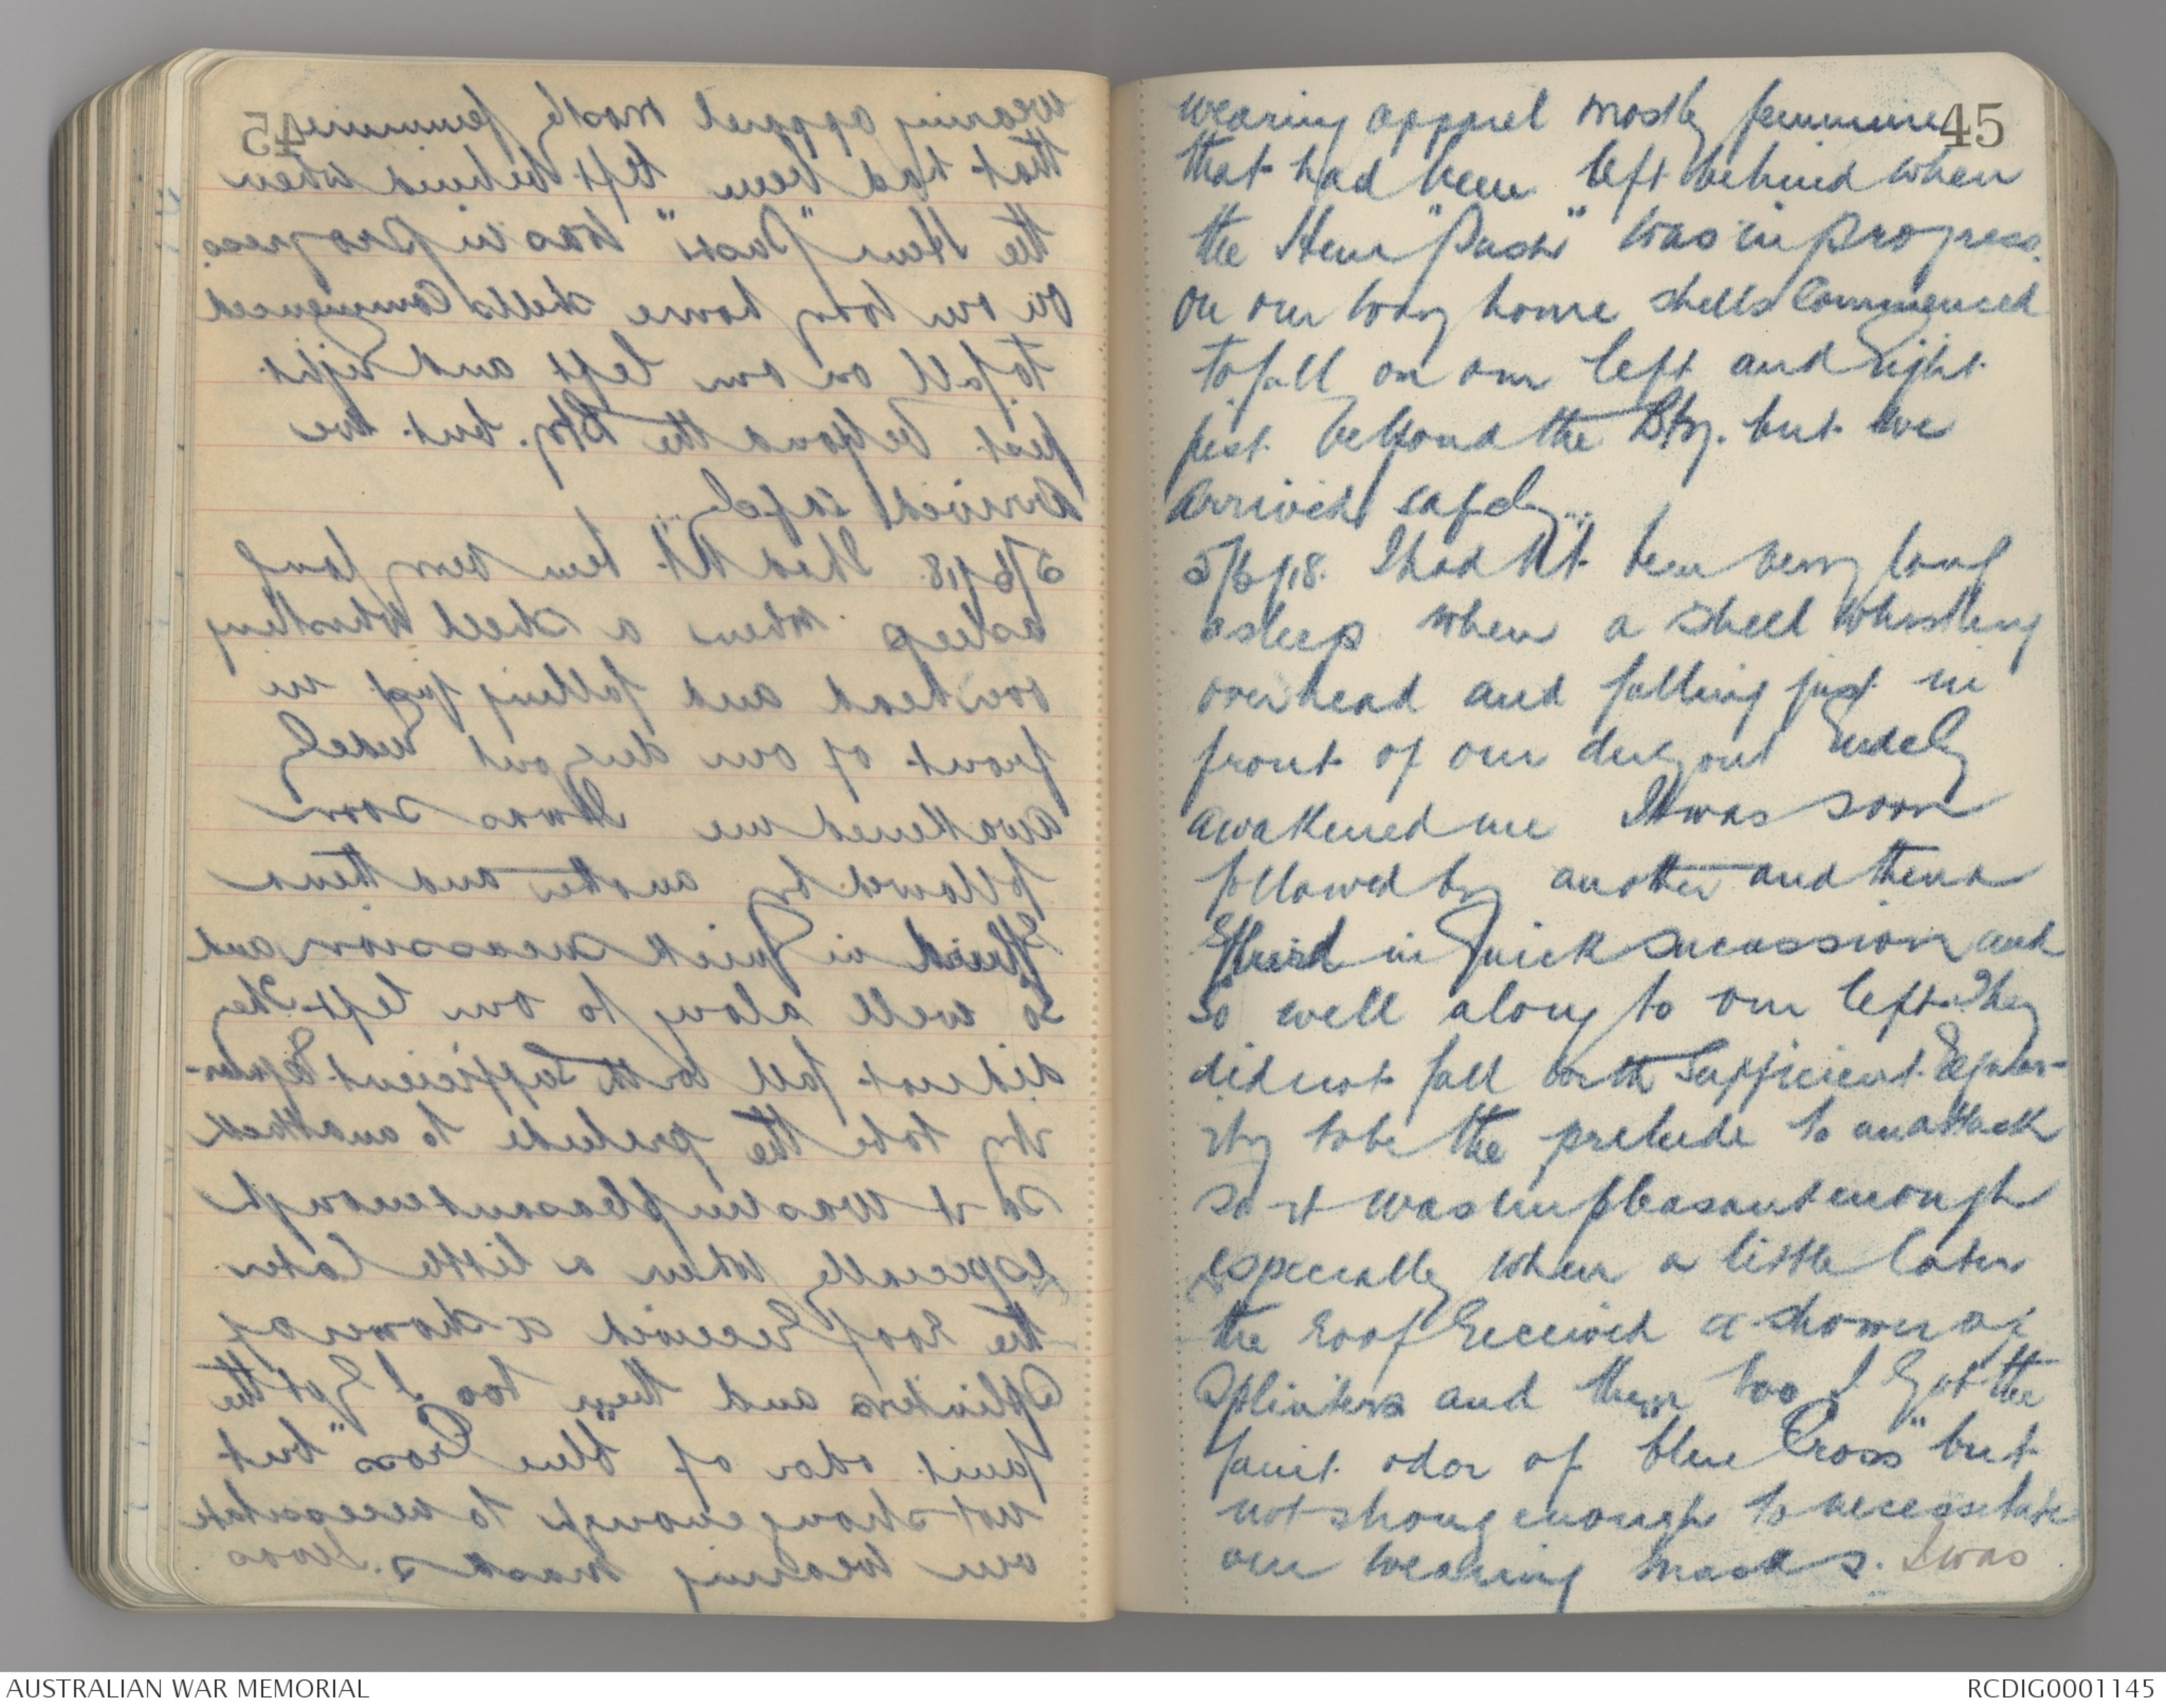 45
wearing apparel mostly feminine
that had been left behind when
the Hun "Push" was in progress.
On our way home shells commenced
to fall on our left and right
just beyond the Bty. but we
arrived safely...
5/6/18. I had n't been very long
asleep when a shell whistling
overhead and falling just in
front of our dugout rudely
awakened me It was soon
followed by another and then a
third in quick sucession and
so well along to our left. They
did not fall with sufficient regular-
ity to be the prelude to an attack
so it was unpleasant enough
especially when a little later
the roof received a shower of
splinters and then too I got the
faint odor of "blue Cross" but
not strong enough to necessitate
our wearing masks. I was
AUSTRALIAN WAR MEMORIAL
RCDIG0001145